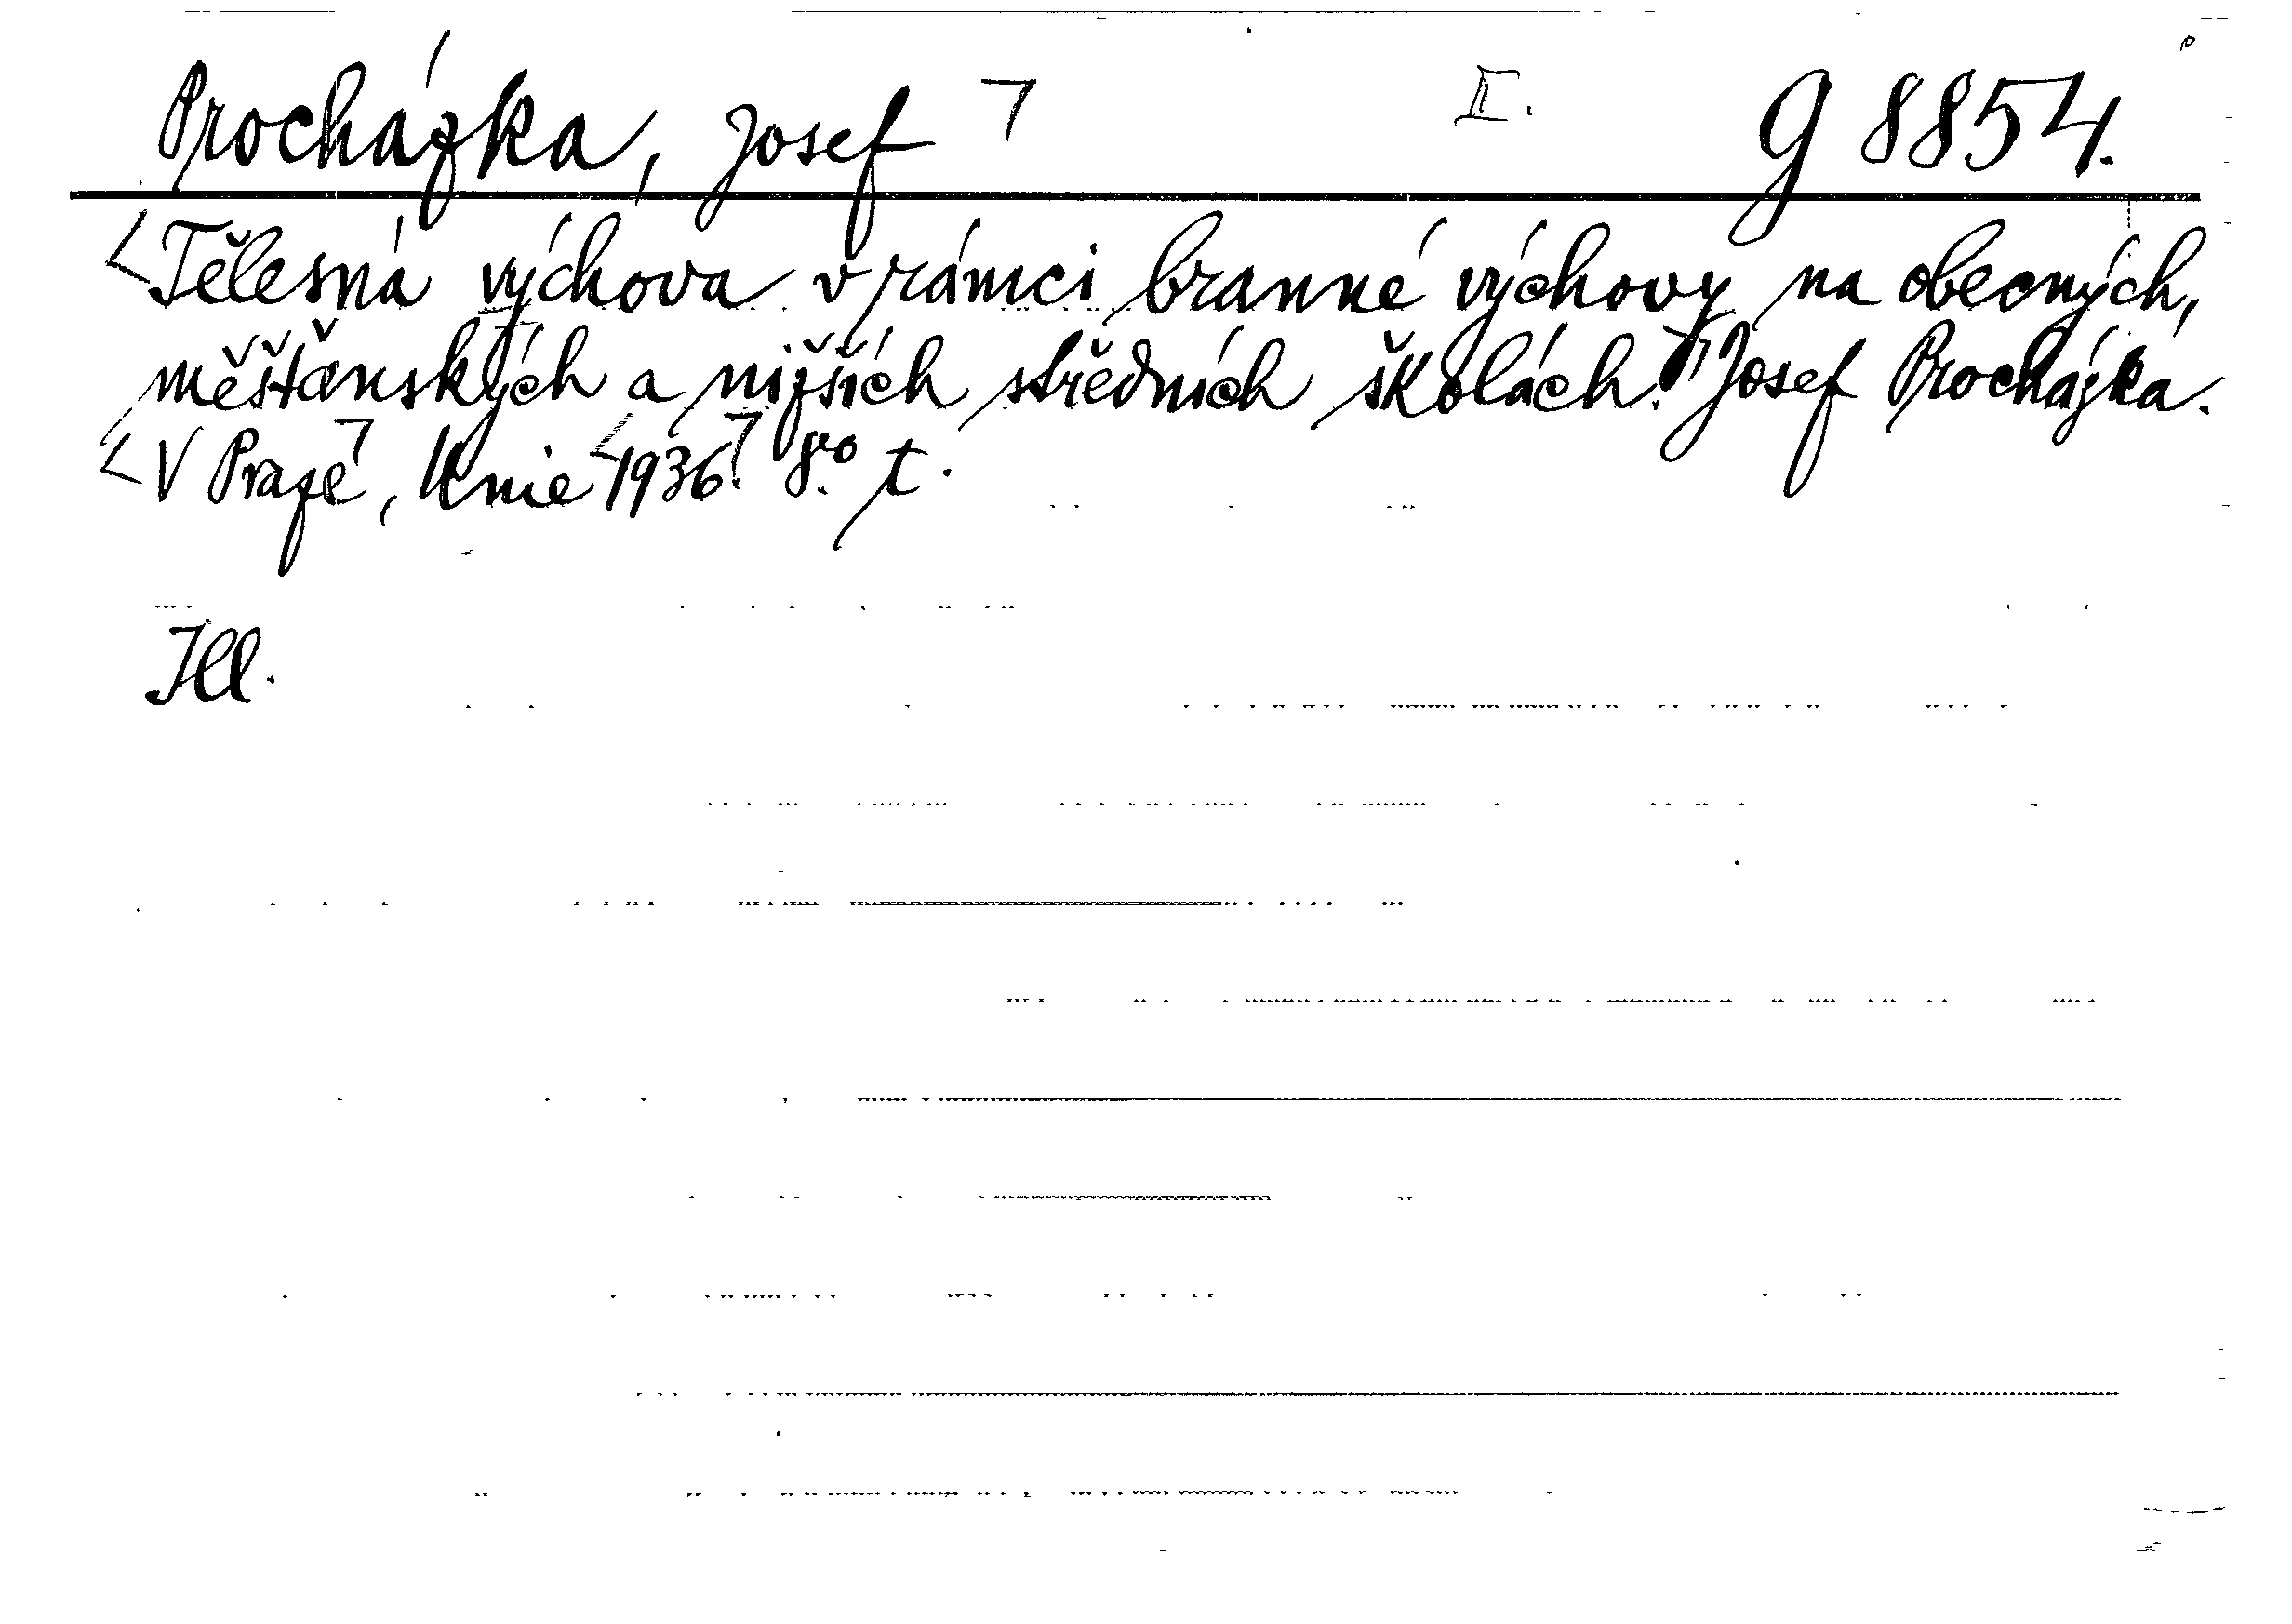 Procházka, Josef I. g 8854.
Tělesná výchova v rámci branné výchovy na obecných,
měšťanských a nižších středních školách. Josef Procházka.
V Praze, Unie 1936. 8º. t.
Ill.